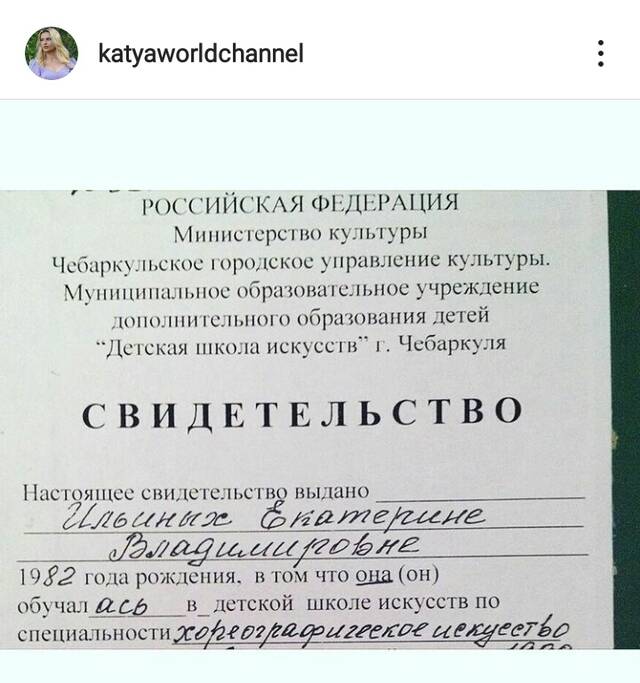 katyaworldchannel
РОССИЙСКАЯ ФЕДЕРАЦИЯ
Министерство культуры
Чебаркульское городское управление культуры.
Муниципальное образовательное учреждение
дополнительного образования детей
“Детская школа искусств” г. Чебаркуля
СВИДЕТЕЛЬСТВО
Настоящее свидетельство выдано
Ильиных Екатерине
Владимировне
1982 года рождения, в том что она (он)
обучалась в детской школе искусств по
специальности хореографическое искусство